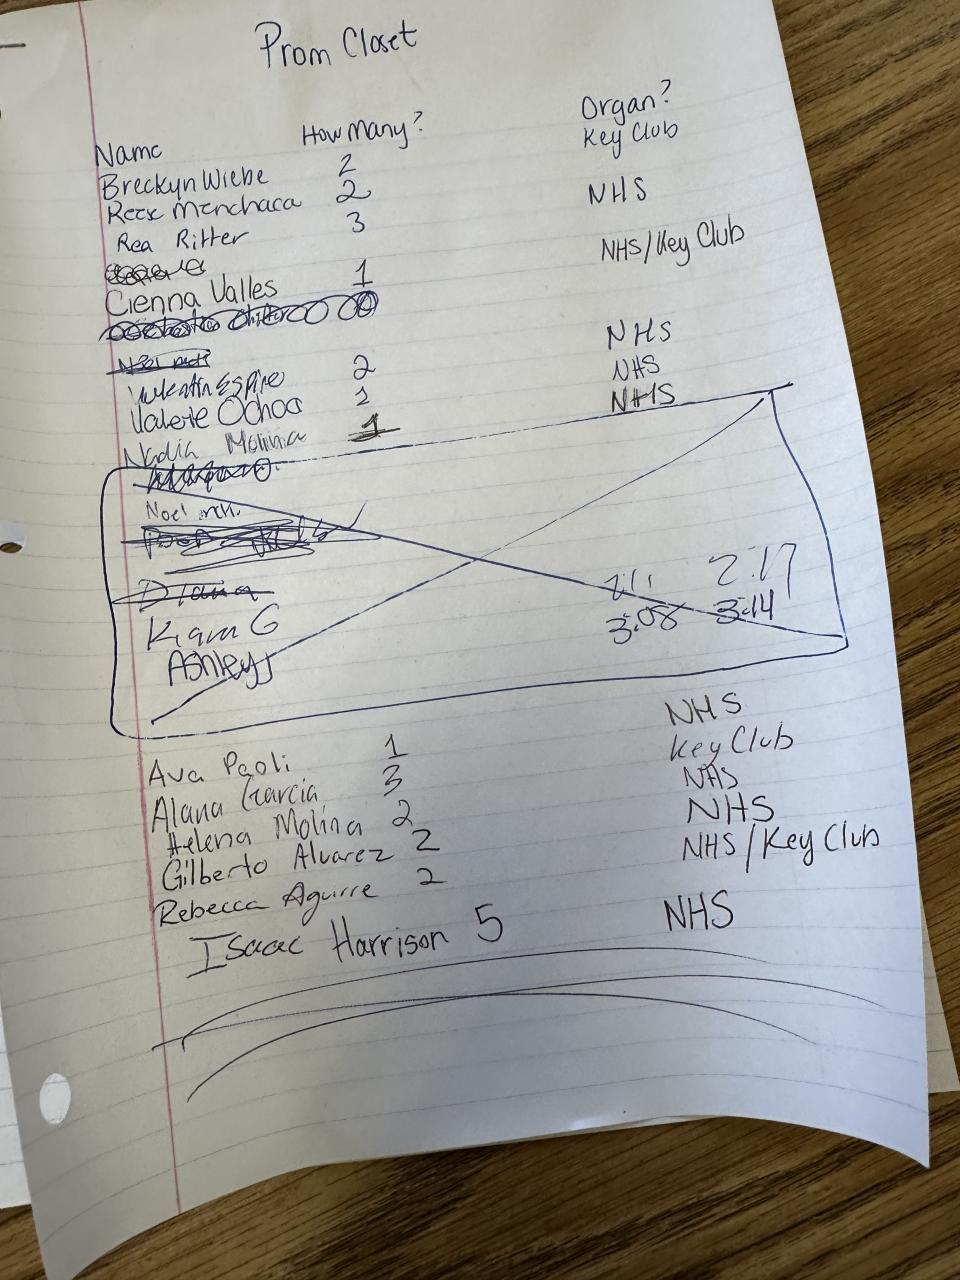 Prom Closet
Name How many? Organ?
Breckyn Wiebe 2 Key Club
Reex Menchaca 2 NHS
Rea Ritter 3 NHS/Key Club
Cienna Valles 1
2 NHS
Valerie Ochoa 1 NHS
Nadia Molina 1 NHS
Noel
Diana
Kiara G 2:17
Ashley 3:08 3:14
Ava Paoli 1 NHS
Alana Garcia 3 Key Club
Helena Molina 2 NHS
Gilberto Alvarez 2 NHS
Rebecca Aguirre 2 NHS/Key Club
Isaac Harrison 5 NHS